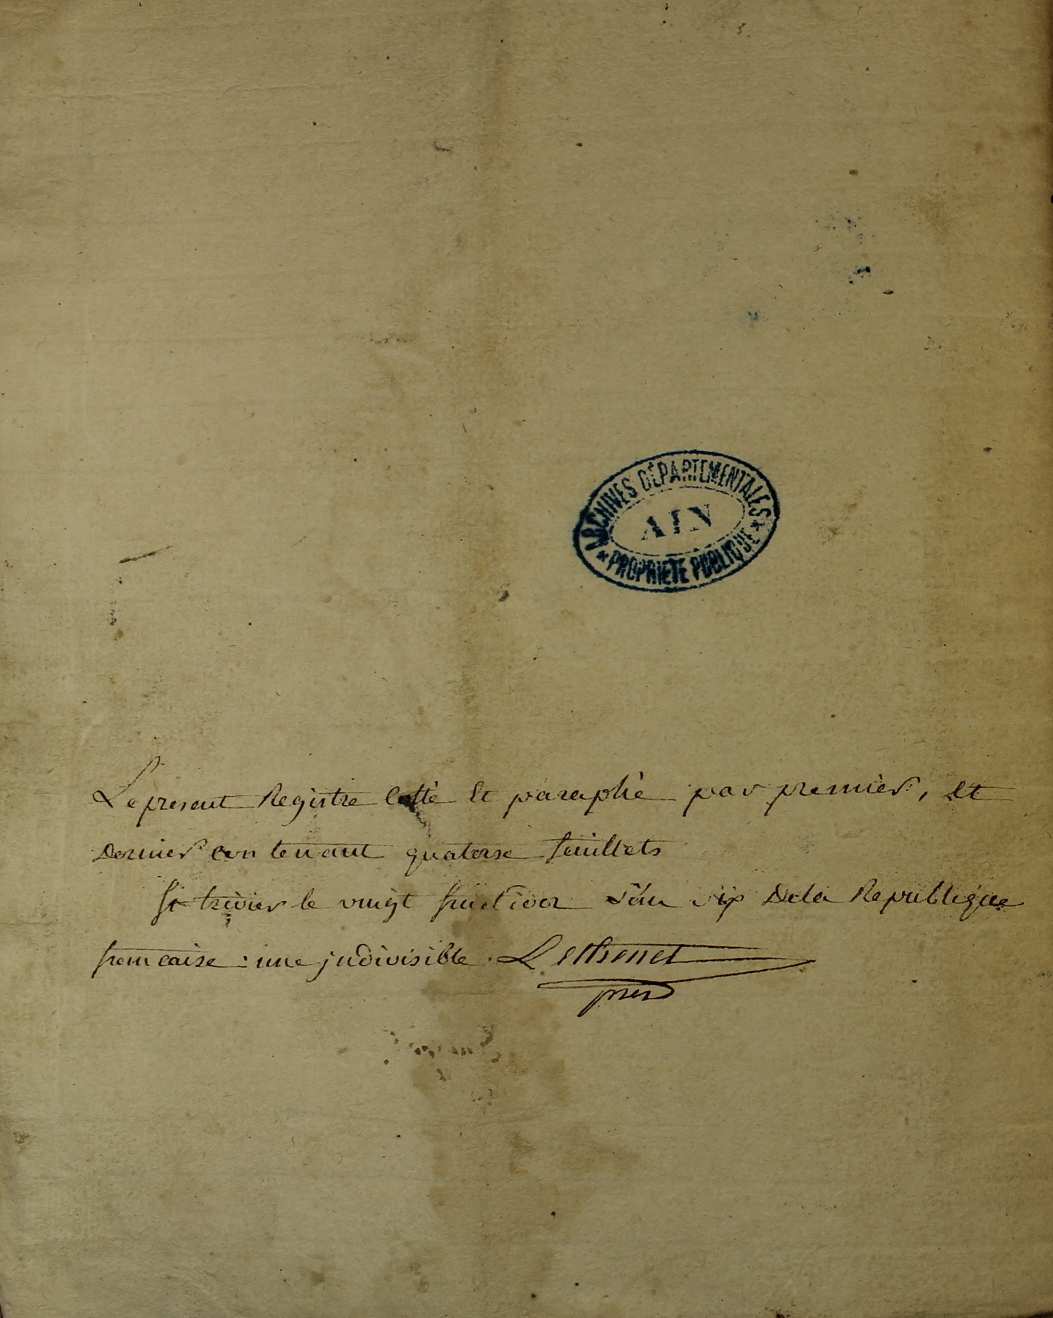 ARCHIVES DÉPARTEMENTALES
AIN
* PROPRIETE PUBLIQUE *
Le present Registre Cotté Et paraphé par premier, Et
Dernier Contenant quatorse feuillets
St trivier le vingt fructidor l'an six De la Republique
francaise : une indivisible.